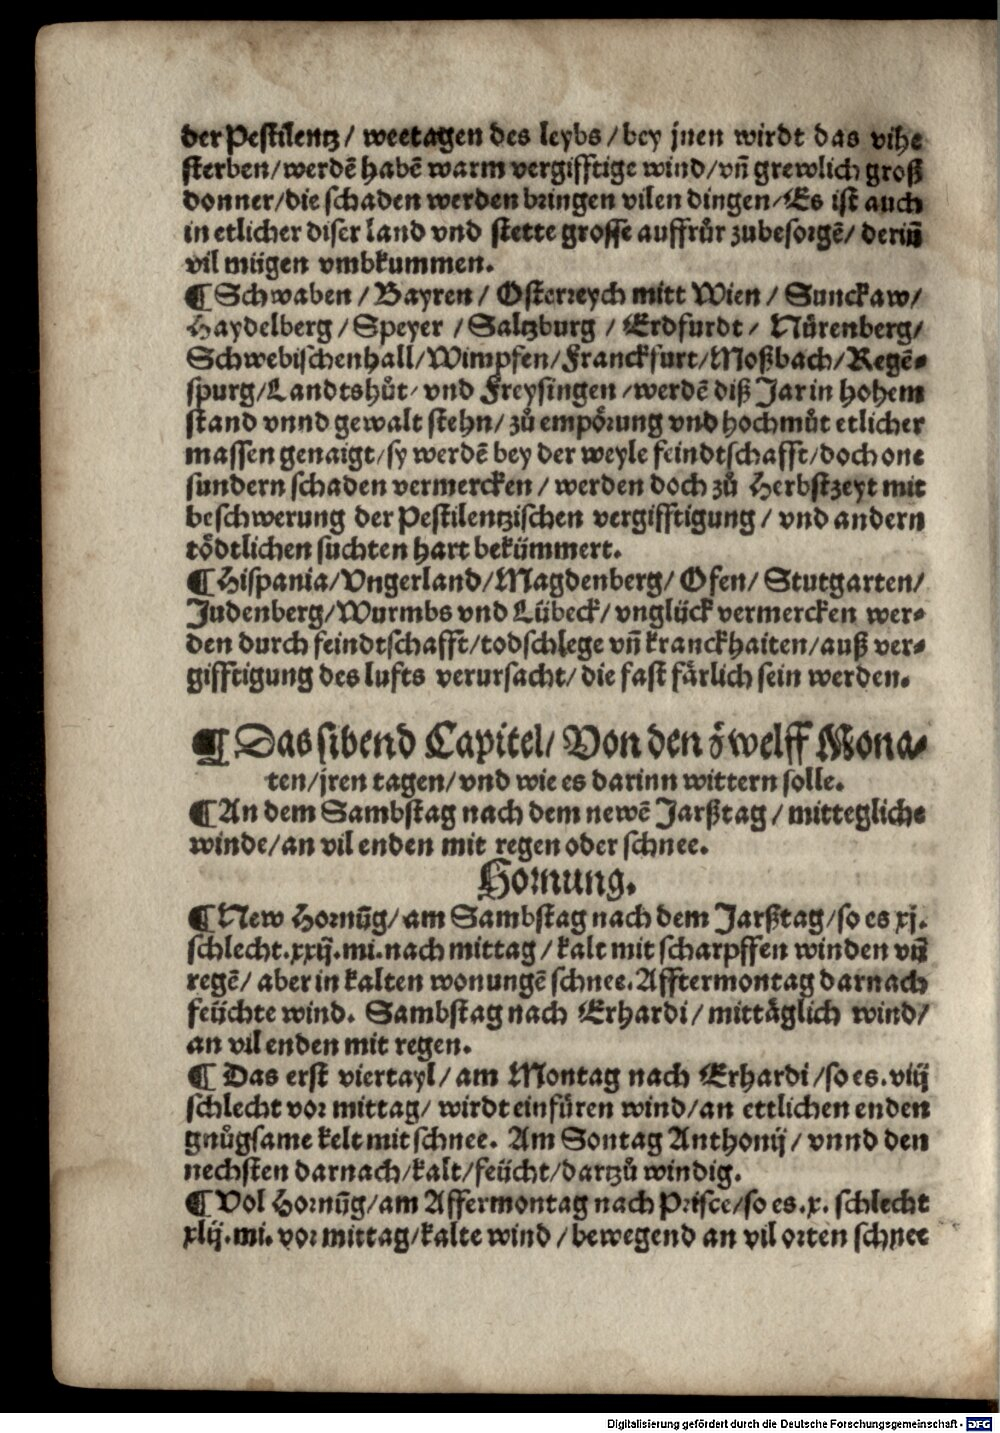 der Pestilentz / weetagen des leybs / bey jnen wirdt das vihe
sterben / werdẽ habẽ warm vergifftige wind / vñ grewlich groß
donner / die schaden werden bringen vilen dingen / Es ist auch
in etlicher diser land vnd stette grosse auffrůr zubesorgẽ / deriñ
vil mügen vmbkummen.
¶ Schwaben / Bayren / Osterreych mitt Wien / Sunckaw /
Haydelberg / Speyer / Saltzburg / Erdfurdt / Nůrenberg /
Schwebischenhall / Wimpfen / Franckfurt / Moßbach / Regẽ-
spurg / Landtshůt / vnd Freysingen / werdẽ diß Jar in hohem
stand vnnd gewalt stehn / zů empörung vnd hochmůt etlicher
massen genaigt / sy werdẽ bey der weyle feindtschafft / doch one
sundern schaden vermercken / werden doch zů Herbstzeyt mit
beschwerung der Pestilentzischen vergifftigung / vnd andern
tödtlichen suchten hart bekümmert.
¶ Hispania / Vngerland / Magdenberg / Ofen / Stutgarten /
Judenberg / Wurmbs vnd Lübeck / vnglück vermercken wer-
den durch feindtschafft / todschlege vñ kranckhaiten / auß ver-
gifftigung des lufts verursacht / die fast färlich sein werden.
¶ Das sibend Capitel / Von den zwelff Mona-
ten / jren tagen / vnd wie es darinn wittern solle.
¶ An dem Sambstag nach dem newẽ Jarßtag / mittegliche
winde / an vil enden mit regen oder schnee.
Hornung.
¶ New Hornũg / am Sambstag nach dem Jarßtag / so es xj.
schlecht .xxij. mi. nach mittag / kalt mit scharpffen winden vñ
regẽ / aber in kalten wonungẽ schnee. Afftermontag darnach
feüchte wind. Sambstag nach Erhardi / mittäglich wind /
an vil enden mit regen.
¶ Das erst viertayl / am Montag nach Erhardi / so es .viij
schlecht vor mittag / wirdt einfüren wind / an ettlichen enden
gnůgsame kelt mit schnee. Am Sontag Anthonij / vnnd den
nechsten darnach / kalt / feücht / dartzů windig.
¶ Vol Hornũg / am Affermontag nach Prisce / so es .x. schlecht
xlij. mi. vor mittag / kalte wind / bewegend an vil orten schnee
Digitalisierung gefördert durch die Deutsche Forschungsgemeinschaft - DFG